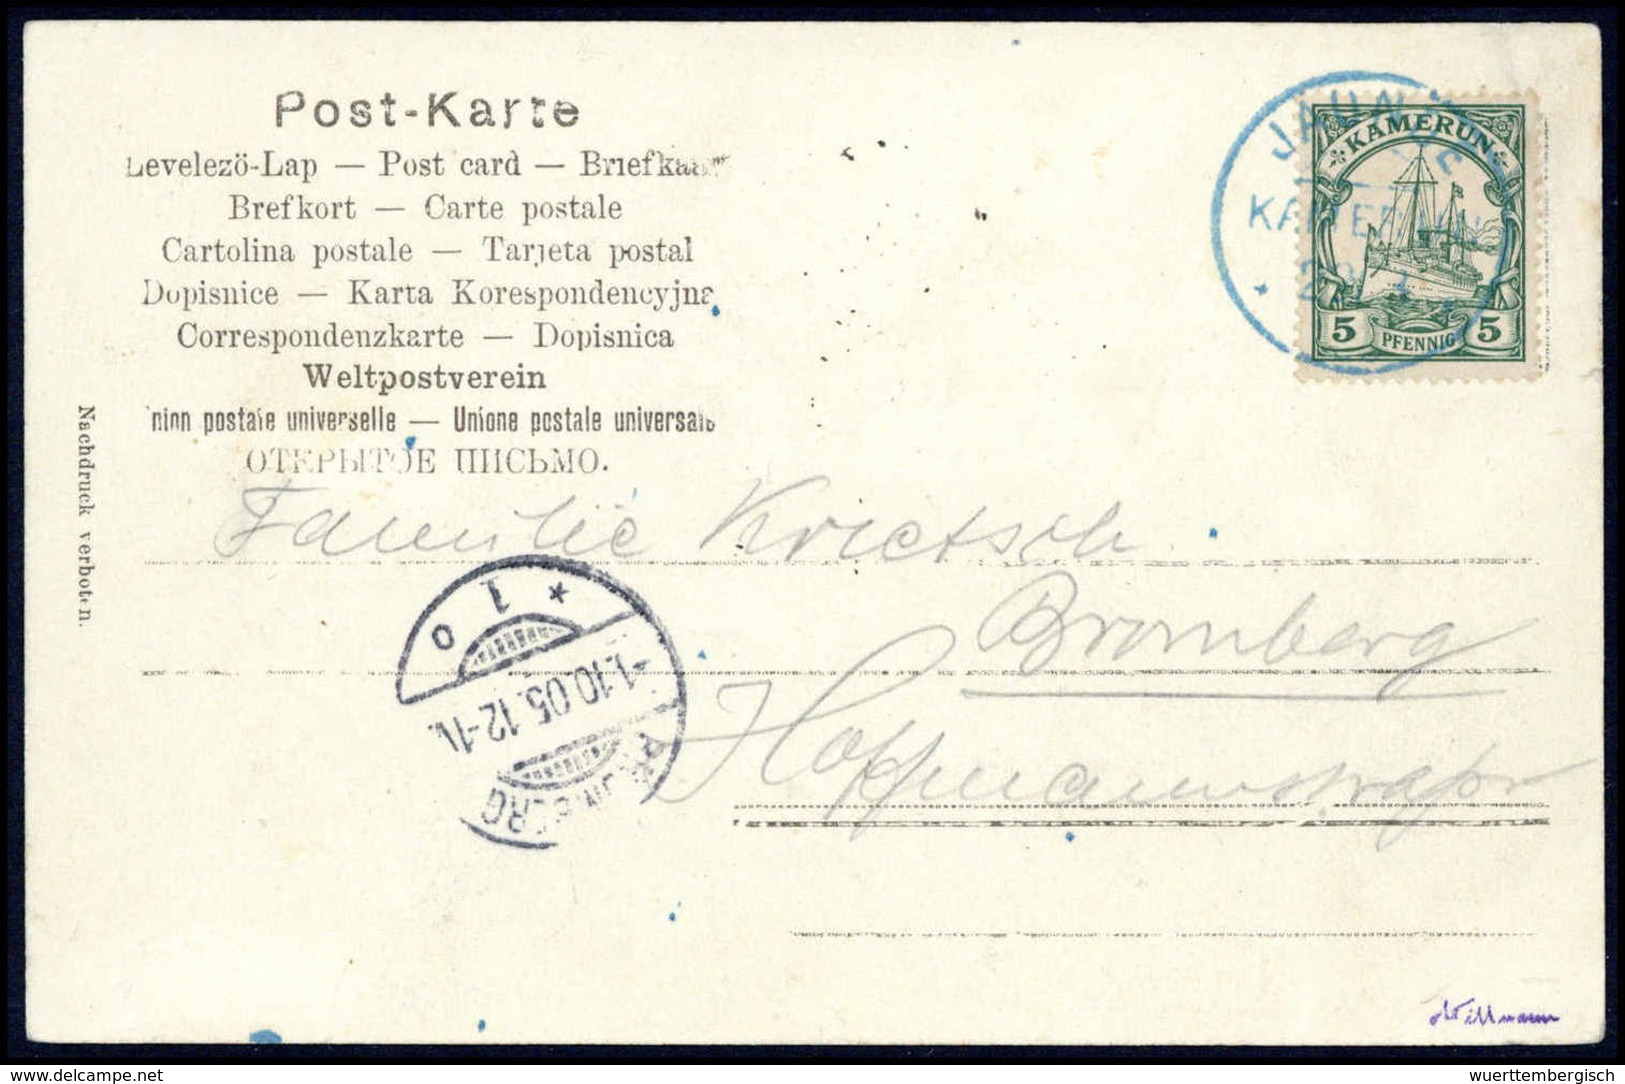 Post-Karte
Levelezö-Lap — Post card — Briefkaart
Brefkort — Carte postale
Cartolina postale — Tarjeta postal
Dopisnice — Karta Korespondencyjna
Correspondenzkarte — Dopisnica
Weltpostverein
Union postale universelle — Unione postale universale
ОТКРЫТОЕ ПИСЬМО.
Nachdruck verboten.
KAMERUN
5 PFENNIG 5
JAUNDE
KAMERUN
Familie Krietsch
Bromberg
Hoffmannstraße
1
1.10.05.12-1N.
BROMBERG
Willmann
delcampe.net
wuerttembergisch